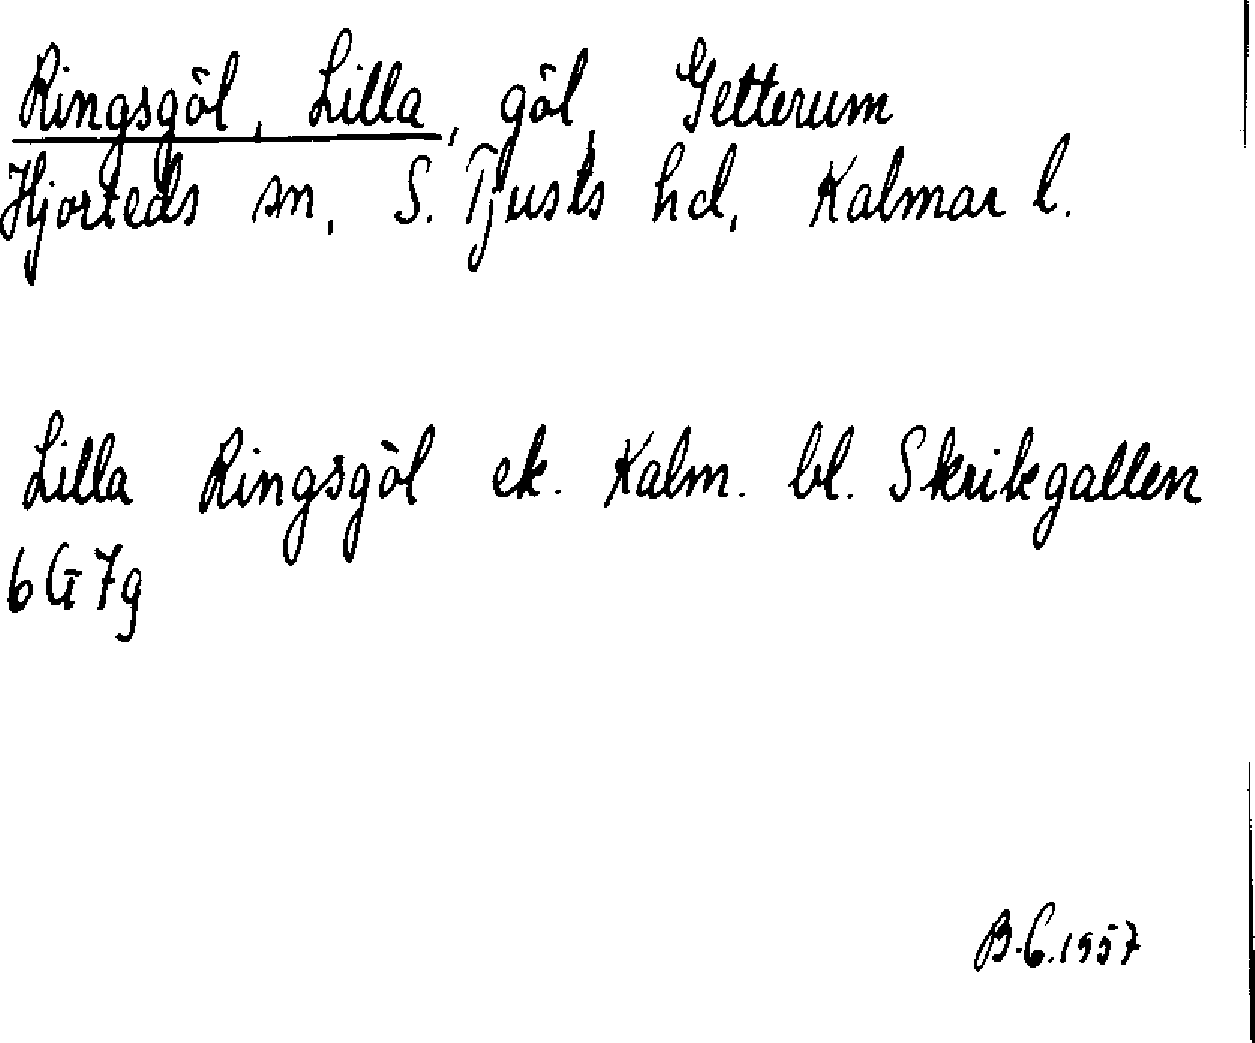 Ringsgöl, Lilla, göl, Getterum
Hjorteds sn, S. Tjusts hd, Kalmar l.
Lilla Ringsgöl ek. Kalm. bl. Skrikgallen
6G7g
B.C. 1957